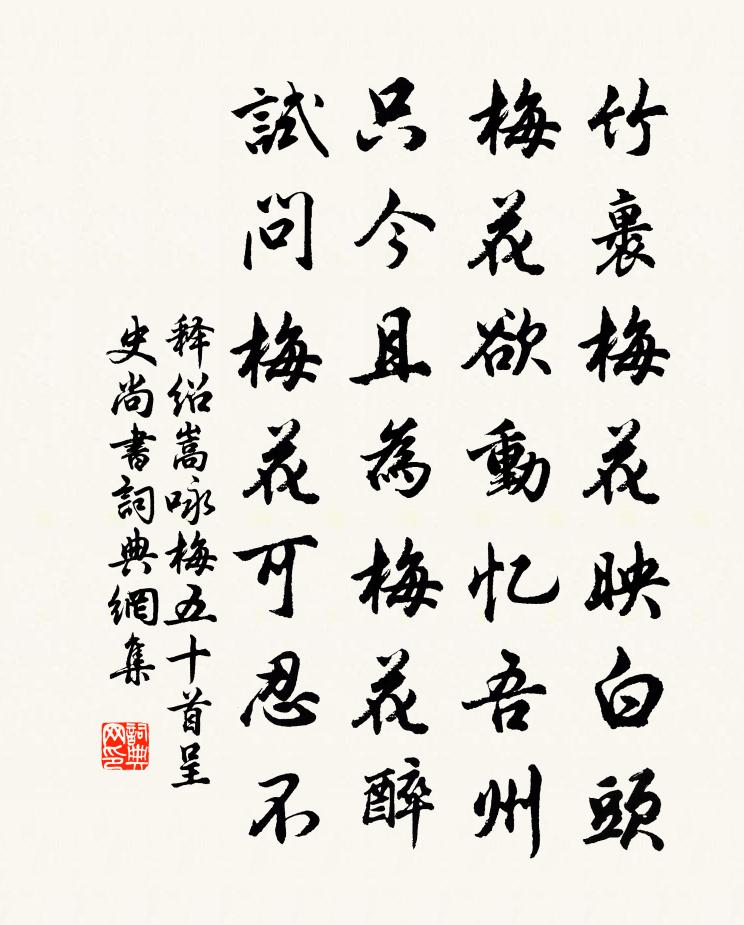 竹裏梅花映白頭
梅花欲動忆吾州
只今且為梅花醉
試問梅花可忍不
释绍嵩咏梅五十首呈
史尚書詞典網集
詞典网印